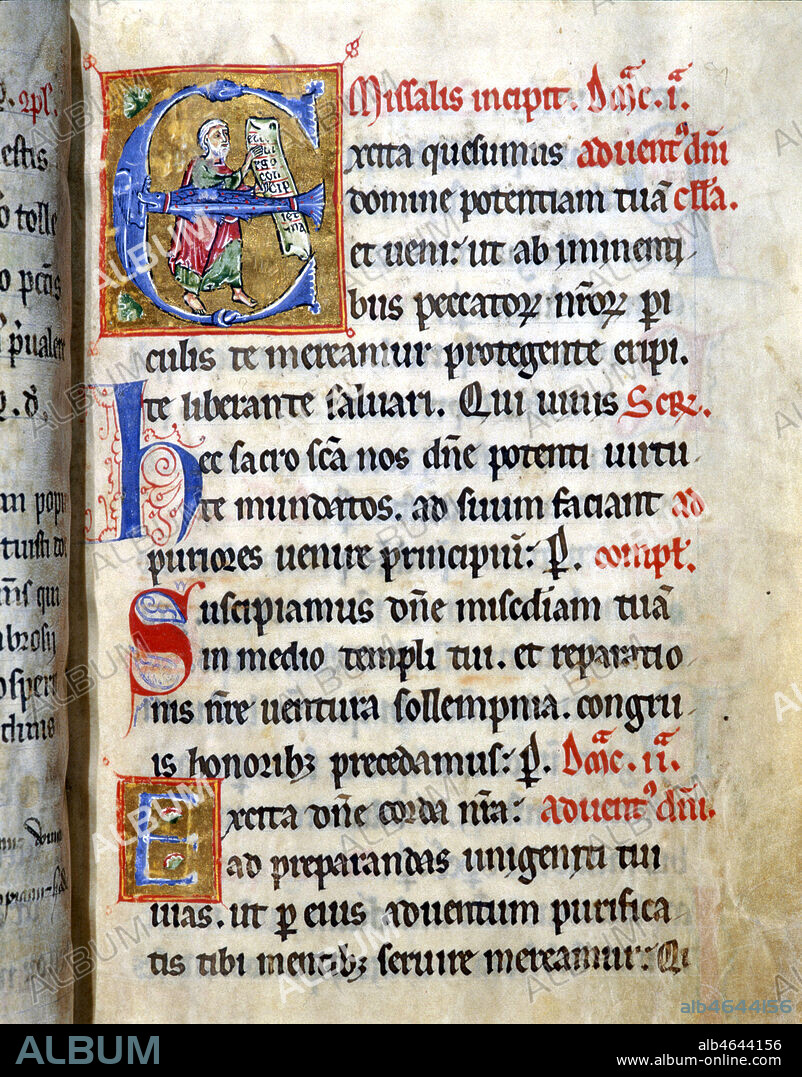 Missalis incipit. Dñc. ia.
Excita quesumus aduentꝰ dñi
domine potentiam tuã cllã.
et ueni: ut ab iminenti
bus peccatoꝝ nr̃oꝝ pi
culis te mereamur protegente eripi.
te liberante saluari. Qui uiuis Secꝝ.
hec sacro scã nos dñe potenti uirtu
te mundatos. ad suum faciant ad
puriores uenire principiũ: P. compl.
Suscipiamus dñe miscdiam tuã
in medio templi tui. et reparatio
nis nr̃e uentura sollempnia. congru
is honoribꝫ precedamus: P. Dñc. iia.
Excita dñe corda nr̃a: aduentꝰ dñi.
ad preparandas unigeniti tui
uias. ut p eius aduentum purifica
tis tibi mentibꝫ seruire mereamur: Qi
estis
tolle
ꝓ pcõs
p̃ualer
popu
qui
ALBUM
alb4644156
ALBUM
alb4644156
www.album-online.com